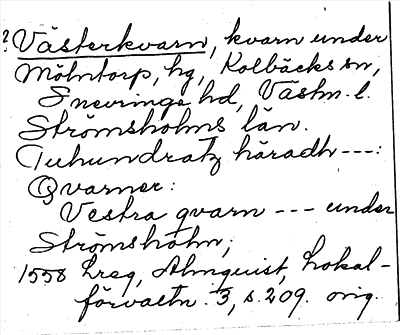 ? Västerkvarn, kvarn under
Möhntorp, hg, Kolbäcks sn,
Snevringe hd, Västm. l.
Strömsholms län.
Tuhundratz häradh ---:
Qvarner:
Vestra qvarn --- under
Strömsholm,
1558 Lreg, Almquist, Lokal-
förvaltn. 3, s. 209. orig.